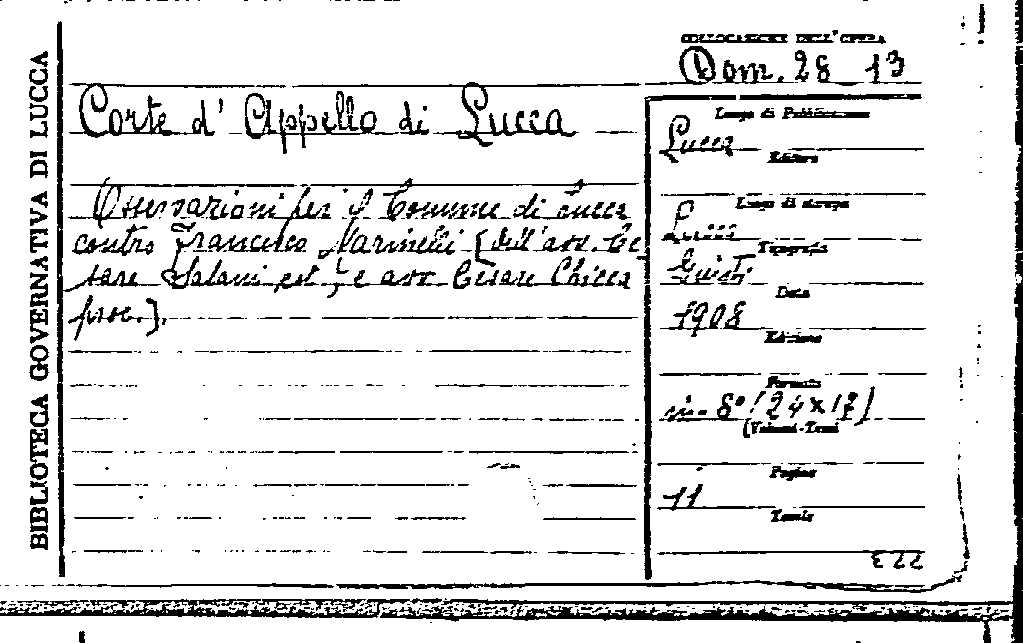 BIBLIOTECA GOVERNATIVA DI LUCCA
COLLOCAZIONE DELL'OPERA
Dom. 28 13
Corte d' Appello di Lucca
Osservazioni per il Comune di Lucca
contro Francesco Marinelli [dell'avv. Ce-
sare Salani est., e avv. Cesare Chicca
proc.].
Luogo di Pubblicazione
Lucca
Editore
Luogo di stampa
Lucca
Tipografia
Giusti
Data
1908
Edizione
Formato
in-8° (24x17)
(Volumi-Tomi
Pagine
11
Tavole